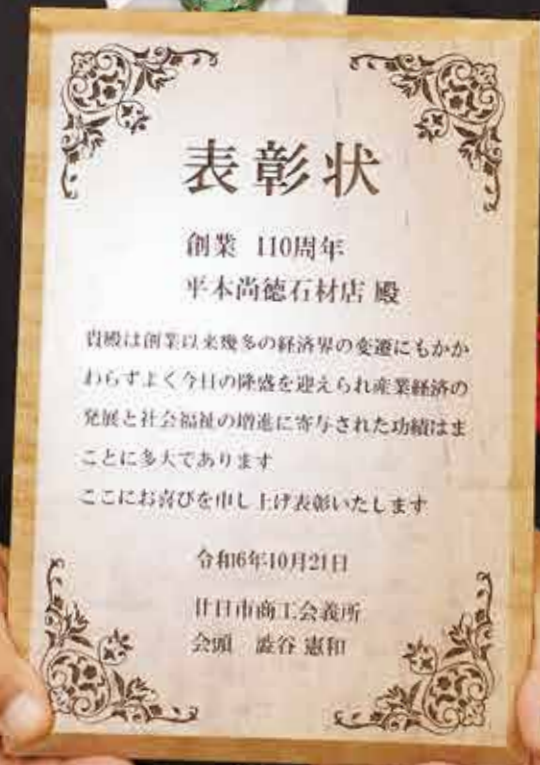 表彰状
創業 110周年
平本尚徳石材店 殿
貴殿は創業以来幾多の経済界の変遷にもかか
わらずよく今日の隆盛を迎えられ産業経済の
発展と社会福祉の増進に寄与された功績はま
ことに多大であります
ここにお喜びを申し上げ表彰いたします
令和6年10月21日
廿日市商工会議所
会頭 澁谷 憲和